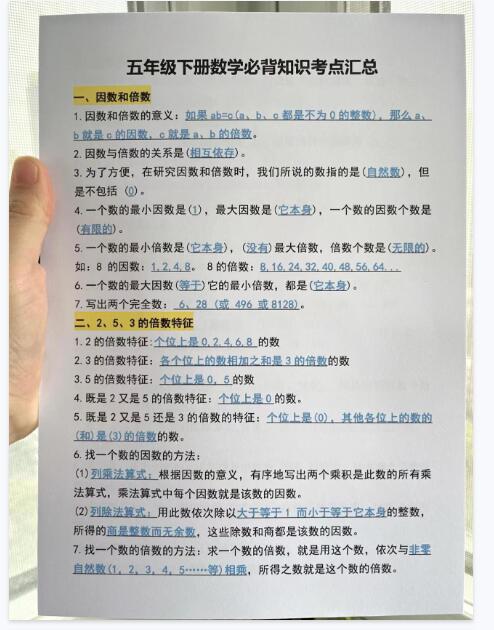 五年级下册数学必背知识考点汇总
一、因数和倍数
1.因数和倍数的意义：如果 ab=c(a、b、c 都是不为 0 的整数)，那么 a、
b 就是 c 的因数，c 就是 a、b 的倍数。
2.因数与倍数的关系是(相互依存)。
3.为了方便，在研究因数和倍数时，我们所说的数指的是(自然数)，但
是不包括 (0)。
4.一个数的最小因数是(1)，最大因数是(它本身)，一个数的因数个数是
(有限的)。
5.一个数的最小倍数是(它本身)，(没有)最大倍数，倍数个数是(无限的)。
如：8 的因数：1,2,4,8。 8 的倍数：8,16,24,32,40,48,56,64...
6.一个数的最大因数(等于)它的最小倍数，都是(它本身)。
7.写出两个完全数： 6、28 (或 496 或 8128)。
二、2、5、3 的倍数特征
1.2 的倍数特征:个位上是 0,2,4,6,8 的数
2.3 的倍数特征：各个位上的数相加之和是 3 的倍数的数
3.5 的倍数特征：个位上是 0，5 的数
4.既是 2 又是 5 的倍数特征：个位上是 0 的数。
5.既是 2 又是 5 还是 3 的倍数的特征：个位上是(0)，其他各位上的数的
(和)是(3)的倍数的数。
6.找一个数的因数的方法：
(1)列乘法算式：根据因数的意义，有序地写出两个乘积是此数的所有乘
法算式，乘法算式中每个因数就是该数的因数。
(2)列除法算式：用此数依次除以大于等于 1 而小于等于它本身的整数，
所得的商是整数而无余数，这些除数和商都是该数的因数。
7.找一个数的倍数的方法：求一个数的倍数，就是用这个数，依次与非零
自然数(1，2，3，4，5……等)相乘，所得之数就是这个数的倍数。